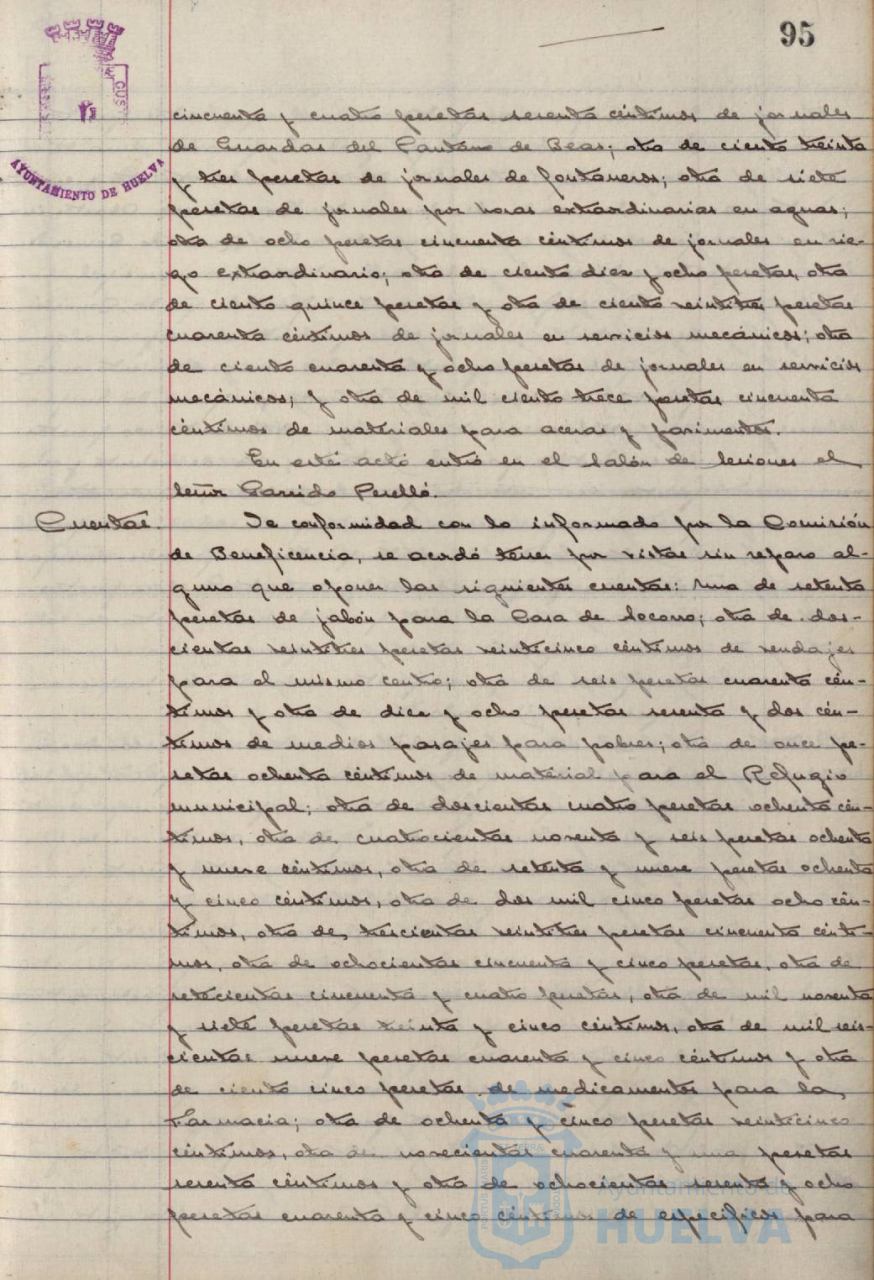 95
AYUNTAMIENTO DE HUELVA
cincuenta y cuatro pesetas sesenta céntimos de jornales
de Guardas del Pantano de Beas; otra de ciento treinta
y tres pesetas de jornales de fontaneros; otra de siete
pesetas de jornales por horas extraordinarias en aguas;
otra de ocho pesetas cincuenta céntimos de jornales en rie-
go extraordinario; otra de ciento diez y ocho pesetas, otra
de ciento quince pesetas y otra de ciento veintitres pesetas
cuarenta céntimos de jornales en servicios mecánicos; otra
de ciento cuarenta y ocho pesetas de jornales en servicios
mecánicos; y otra de mil ciento trece pesetas cincuenta
céntimos de materiales para aceras y pavimentos.
En este acto entró en el Salón de Sesiones el
Señor Garrido Perelló.
Cuentas.
De conformidad con lo informado por la Comisión
de Beneficencia, se acordó tener por vistas sin reparo al-
guno que oponer las siguientes cuentas: Una de setenta
pesetas de jabón para la Casa de Socorro; otra de dos-
cientas veintitres pesetas veinticinco céntimos de vendajes
para el mismo centro; otra de seis pesetas cuarenta cén-
timos y otra de diez y ocho pesetas sesenta y dos cén-
timos de medios pasajes para pobres; otra de once pe-
setas ochenta céntimos de material para el Refugio
municipal; otra de doscientas cuatro pesetas ochenta cén-
timos, otra de cuatrocientas noventa y seis pesetas ochenta
y nueve céntimos, otra de setenta y nueve pesetas ochenta
y cinco céntimos, otra de dos mil cinco pesetas ocho cén-
timos, otra de, trescientas veintitres pesetas cincuenta cénti-
mos, otra de ochocientas cincuenta y cinco pesetas, otra de
setecientas cincuenta y cuatro pesetas, otra de mil noventa
y siete pesetas treinta y cinco céntimos, otra de mil seis-
cientas nueve pesetas cuarenta y cinco céntimos y otra
de ciento cinco pesetas de medicamentos para la
Farmacia; otra de ochenta y cinco pesetas veinticinco
céntimos, otra de novecientas cuarenta y una pesetas
sesenta céntimos y otra de ochocientas sesenta y ocho
pesetas cuarenta y cinco céntimos de específicos para
Ayuntamiento de
HUELVA